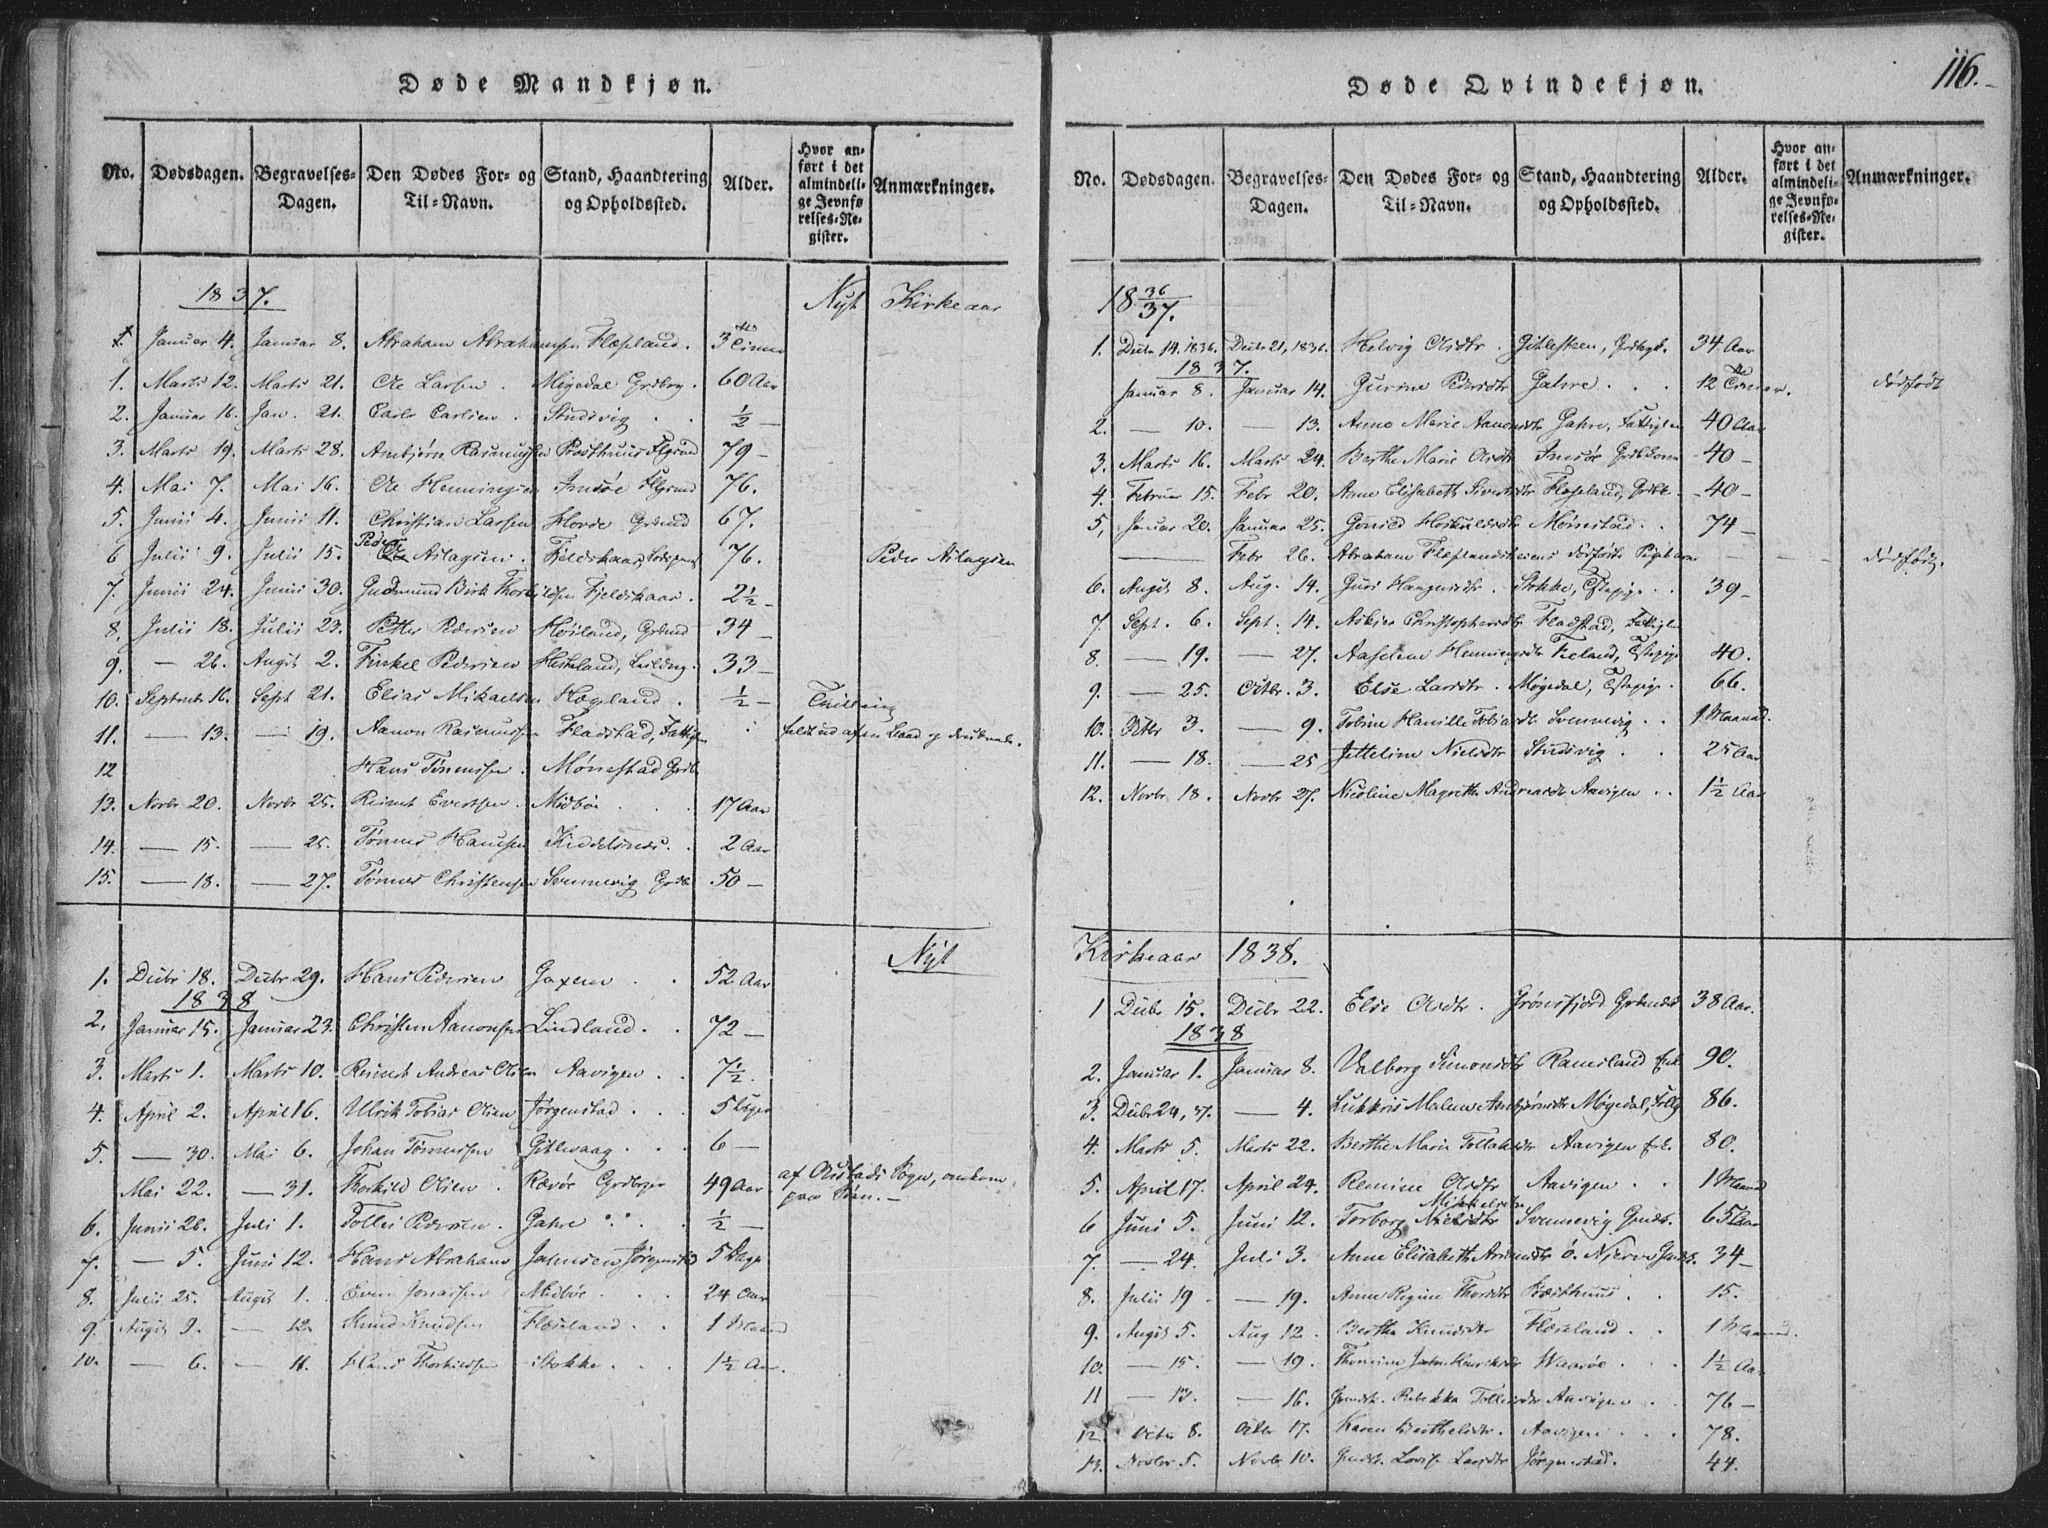 116.
Døde Mandkjøn.
No. Dødsdagen. Begravelses-Dagen. Den Dødes For- og Til-Navn. Stand, Haandtering og Opholdssted. Alder. Hvor anført i det almindelige Jevnførelses-Register. Anmærkninger.
1837. Nyt Kirkeaar
Januar 4. Januar 8. Abraham Abrahamsen Flæseland. 3
1. Marts 12. Marts 21. Ole Larsen. Migedal 60 Aar
2. Januar 16. Jan. 21. Carl Carlsen. Studsvig ½ —
3. Marts 19. Marts 28. Anbjørn Rasmussen Præsthuus 79 —
4. Mai 7. Mai 16. Ole Henningsen Imsøe 76.
5. Junii 4. Junii 11. Christian Larsen Hovde Grdmd 67.
6 Julii 9. Julii 15. Peder Aslagsen. Fjeldskaar, 76. Peder Aslagsen
7. Junii 24. Junii 30. Gudmund Birk Thorkildsen Fjeldskaar. 2½ —
8. Julii 18. Julii 23. Petter Pedersen Høiland, Grdmd 34 —
9. — 26. Augst 2. Finkel Pedersen Heskeland, 33 —
10. Septembr 16. Sept 21. Elias Mikaelsen Hægeland. ½ — Tvilling
11. — 13. — 19. Aanon Rasmussen Fladstad, faldt ud af en Baad og druknede.
12 Hans Tønnessen. Mønestad
13. Novbr 20. Novbr 25. Reinert Evertsen. Midbøe 17 Aar
14. — 15. — 25. Tønnes Hansen Kiddelsnes. 2 Aar
15. — 18. — 27. Tønnes Christensen Svennevig 50 —
Nyt
1. Decbr 18. Decbr 29. Hans Pedersen Goxem 52 Aar
1838
2. Januar 15. Januar 23. Christen Aanonsen Lindland. 72 —
3. Marts 1. Marts 10. Reinert Andreas Olsen Aavigen 7½.
4. April 2. April 16. Ulrik Tobias Olsen Jørgenstad 5 Uger
5. — 30. Mai 6. Johan Tønnessen Gitlevaag 6 —
Mai 22. — 31. Thorkild Olsen. Rævøe 49 Aar af Oustads Sogn, omkom paa Søen. —
6. Junii 26. Juli 1. Tollev Pedersen. Gahre ½ —
7. — 5. Juni 12. Hans Abraham Jahnsen, Jørgenstad 5 Dage
8. Julii 25. Augst 1. Even Jonassen Midbøe 24 Aar
9. Augst 9. — 12. Knud Knudsen Flæseland 1 Maaned
10. — 6. — 11. Hans Thorkildsen Stokke 1½ Aar.
Døde Qvindekjøn.
No. Dødsdagen. Begravelses-Dagen. Den Dødes For- og Til-Navn. Stand, Haandtering og Opholdssted. Alder. Hvor anført i det almindelige Jevnførelses-Register. Anmærkninger.
18 36/37.
1. Decbr 14. 1836. Decbr 21, 1836. Helvig Olsdtr. Gitlesteen, 34 Aar
1837.
Januar 8. Januar 14. Gurine Pedersdtr Gahre 12 dødfødt
2. — 10. — 13. Anne Marie Aanondtr Gahre, 40 Aar
3. Marts 16. Marts 24. Berthe Marie Olsdtr Imsøe 40 —
4. Februar 15. Febr 20. Anne Elisabeth Sivertsdtr Flæseland, 40 —
5. Januar 20. Januar 25. Gonild Hoskuldsdtr Mønestad 74 —
— Febr 26. Abraham Flæselands dødfødte Pigebarn — dødfødt.
6. Augst 8. Aug. 14. Guri Haagensdtr Stokke, 39 —
7. Sept. 6. Sept. 14. Christophersdtr Fladstad,
8. — 19. — 27. Henningsdtr 40.
9. — 25. Octbr. 3. Else Larsdtr. Møgedal, 66.
10. Octbr 3. — 9. Tobine Tobiasdtr Svennevig 1 Maaned.
11. — 18. — 25 Jetteline Nielsdtr Studsvig 25 Aar
12. Novbr 18. Novbr 27. Nicoline Magrethe Andreasdtr Aavigen 1½ Aar
Kirkeaar 1838.
1 Decbr 15. Decbr 22. Else Olsdtr. Grønsfjord 38 Aar.
1838
2. Januar 1. Januar 8. Valborg Simonsdtr Ramsland Enk 90.
3. Decbr 24, 37. — 4. Malene Anbjørnsdtr Møgedal, 86.
4. Marts 5. Marts 22. Berthe Marie Aavigen Enk. 80.
5. April 17. April 24. Remine Olsdtr Aavigen 1 Maaned
6 Juni 5. Juni 12. Torborg Mikkelsdtr Svennevig 65 Aar
7. — 24. Juli 3. Anne Elisabeth 34 —
8. Julii 19 — 19. Anne Regine Thorsdtr Præsthuus 15.
9. Augst 5. Aug 12. Berthe Knudsdtr Flæseland 1 Maaned.
10. — 15. — 19. Thomine Henriksdtr Waarøe 1½ Aar
11 — 13. — 16. Rebekka Tollevsdtr Aavigen 76 —
12 Octbr 8. Octbr 17. Karen Berthelsdtr. Aavigen 78.
13. Novbr 5. Novbr 10. Lovise Larsdtr Jørgenstad. 44.